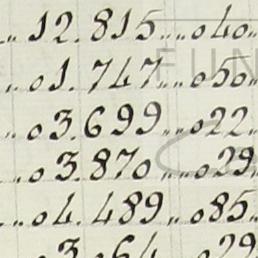 12.815..040
01.747..050
03.699..022
03.870..029
04.489..085
03.064..029
FUN